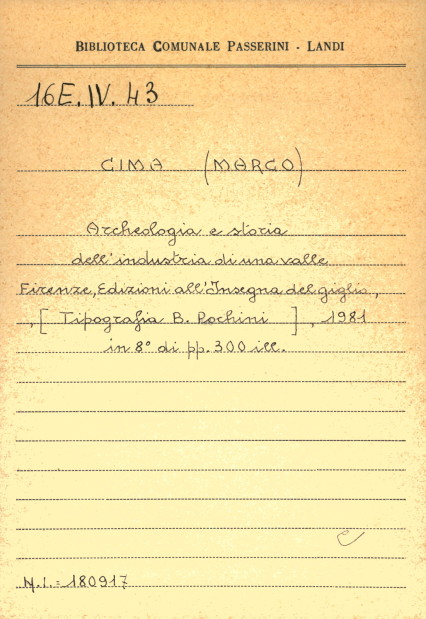 BIBLIOTECA COMUNALE PASSERINI - LANDI
16E.IV.43
CIMA (MARCO)
Archeologia e storia
dell'industria di una valle
Firenze, Edizioni all'Insegna del giglio,
, [ Tipografia B. Pochini ] , 1981
in 8° di pp. 300 ill.
N.I.= 180917